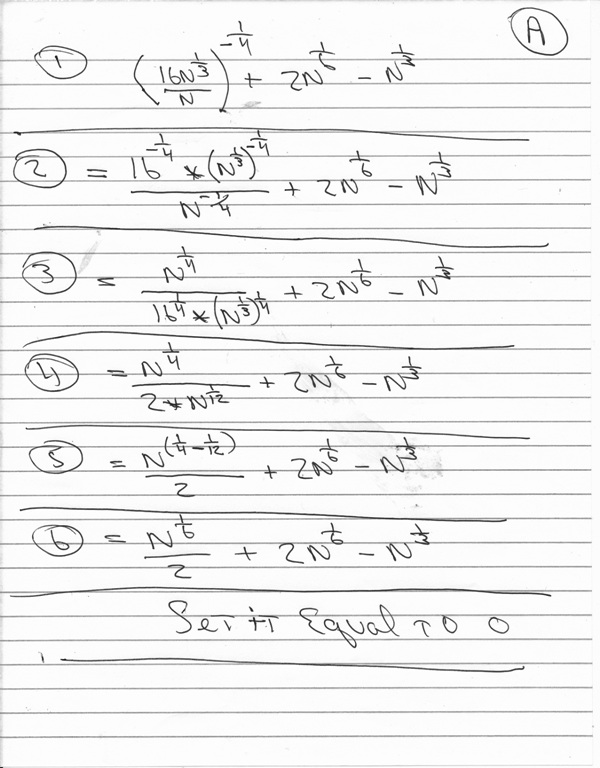 A
1 (16N^(1/3)/N)^(-1/4) + 2N^(1/6) - N^(1/3)
2 = 16^(-1/4) * (N^(1/3))^(-1/4) / N^(-1/4) + 2N^(1/6) - N^(1/3)
3 = N^(1/4) / 16^(1/4) * (N^(1/3))^(1/4) + 2N^(1/6) - N^(1/3)
4 = N^(1/4) / 2 * N^(1/12) + 2N^(1/6) - N^(1/3)
5 = N^(1/4 - 1/12) / 2 + 2N^(1/6) - N^(1/3)
6 = N^(1/6) / 2 + 2N^(1/6) - N^(1/3)
Set it Equal TO 0